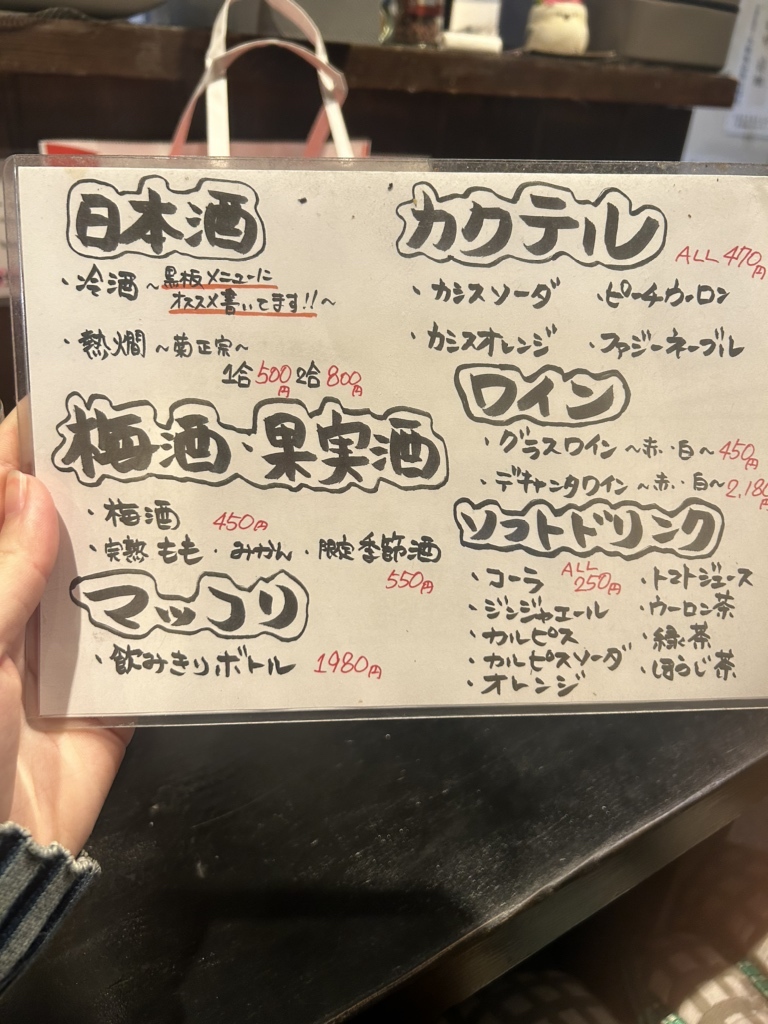 日本酒
・冷酒 ~黒板メニューに
オススメ書いてます!!~
・熱燗 ~菊正宗~
1合500円 2合800円
梅酒・果実酒
・梅酒 450円
・完熟もも・みかん・限定季節酒
550円
マッコリ
・飲みきりボトル 1980円
カクテル
ALL 470円
・カシスソーダ ・ピーチウーロン
・カシスオレンジ ・ファジーネーブル
ワイン
・グラスワイン ~赤・白~ 450円
・デキャンタワイン ~赤・白~ 2,180円
ソフトドリンク
ALL 250円
・コーラ ・トマトジュース
・ジンジャエール ・ウーロン茶
・カルピス ・緑茶
・カルピスソーダ ・ほうじ茶
・オレンジ